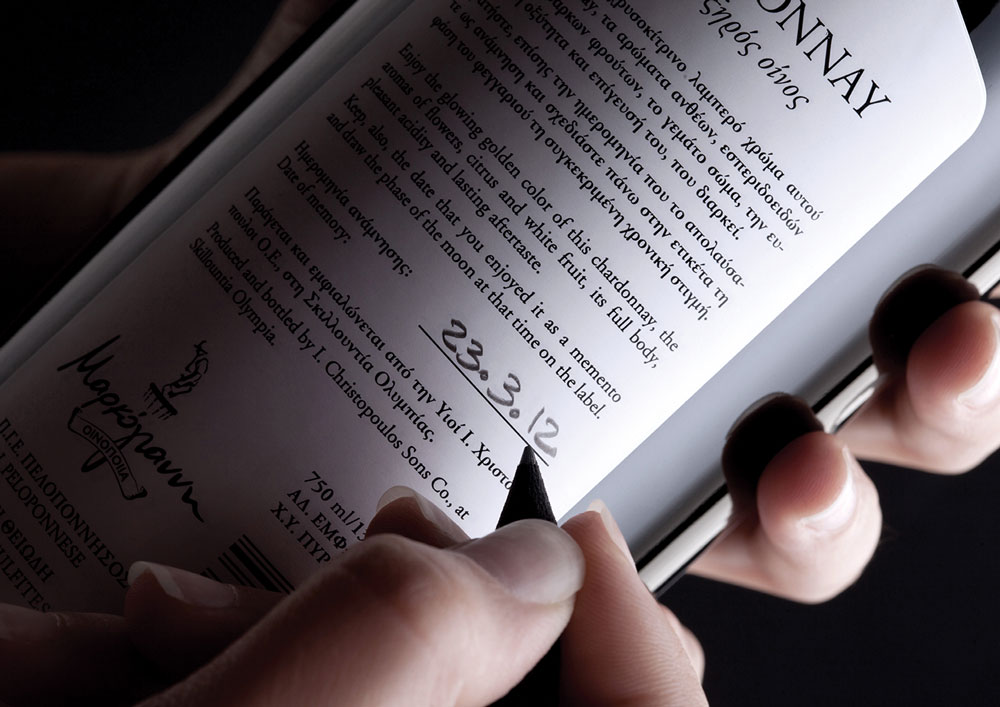 ΟΝΝΑΥ
ξηρός οίνος
χρυσοκίτρινο λαμπερό χρώμα αυτού
τα αρώματα ανθέων, εσπεριδοειδών
άρκων φρούτων, το γεμάτο σώμα, την ευ-
οξύτητα και επίγευσή του, που διαρκεί.
επίσης την ημερομηνία που το απολαύσα-
τε ως ανάμνηση και σχεδιάστε πάνω στην ετικέτα τη
φάση του φεγγαριού τη συγκεκριμένη χρονική στιγμή.
Enjoy the glowing golden color of this chardonnay, the
aromas of flowers, citrus and white fruit, its full body,
pleasant acidity and lasting aftertaste.
Keep, also, the date that you enjoyed it as a memento
and draw the phase of the moon at that time on the label.
Ημερομηνία ανάμνησης:
Date of memory:
23.3.12
Παράγεται και εμφιαλώνεται από την Υιοί Ι. Χριστο
πουλοι Ο.Ε., στη Σκιλλουντία Ολυμπίας.
Produced and bottled by I. Christopoulos Sons Co., at
Skillountia Olympia.
Μαρκόγιαννη
ΟΙΝΟΠΟΙΙΑ
750 ml/13
ΑΛ. ΕΜΦ
Χ.Υ. ΠΥΡ
Π.Γ.Ε. ΠΕΛΟΠΟΝΝΗΣΟΣ
PELOPONNESE
ΘΕΙΩΔΗ
SULFITES